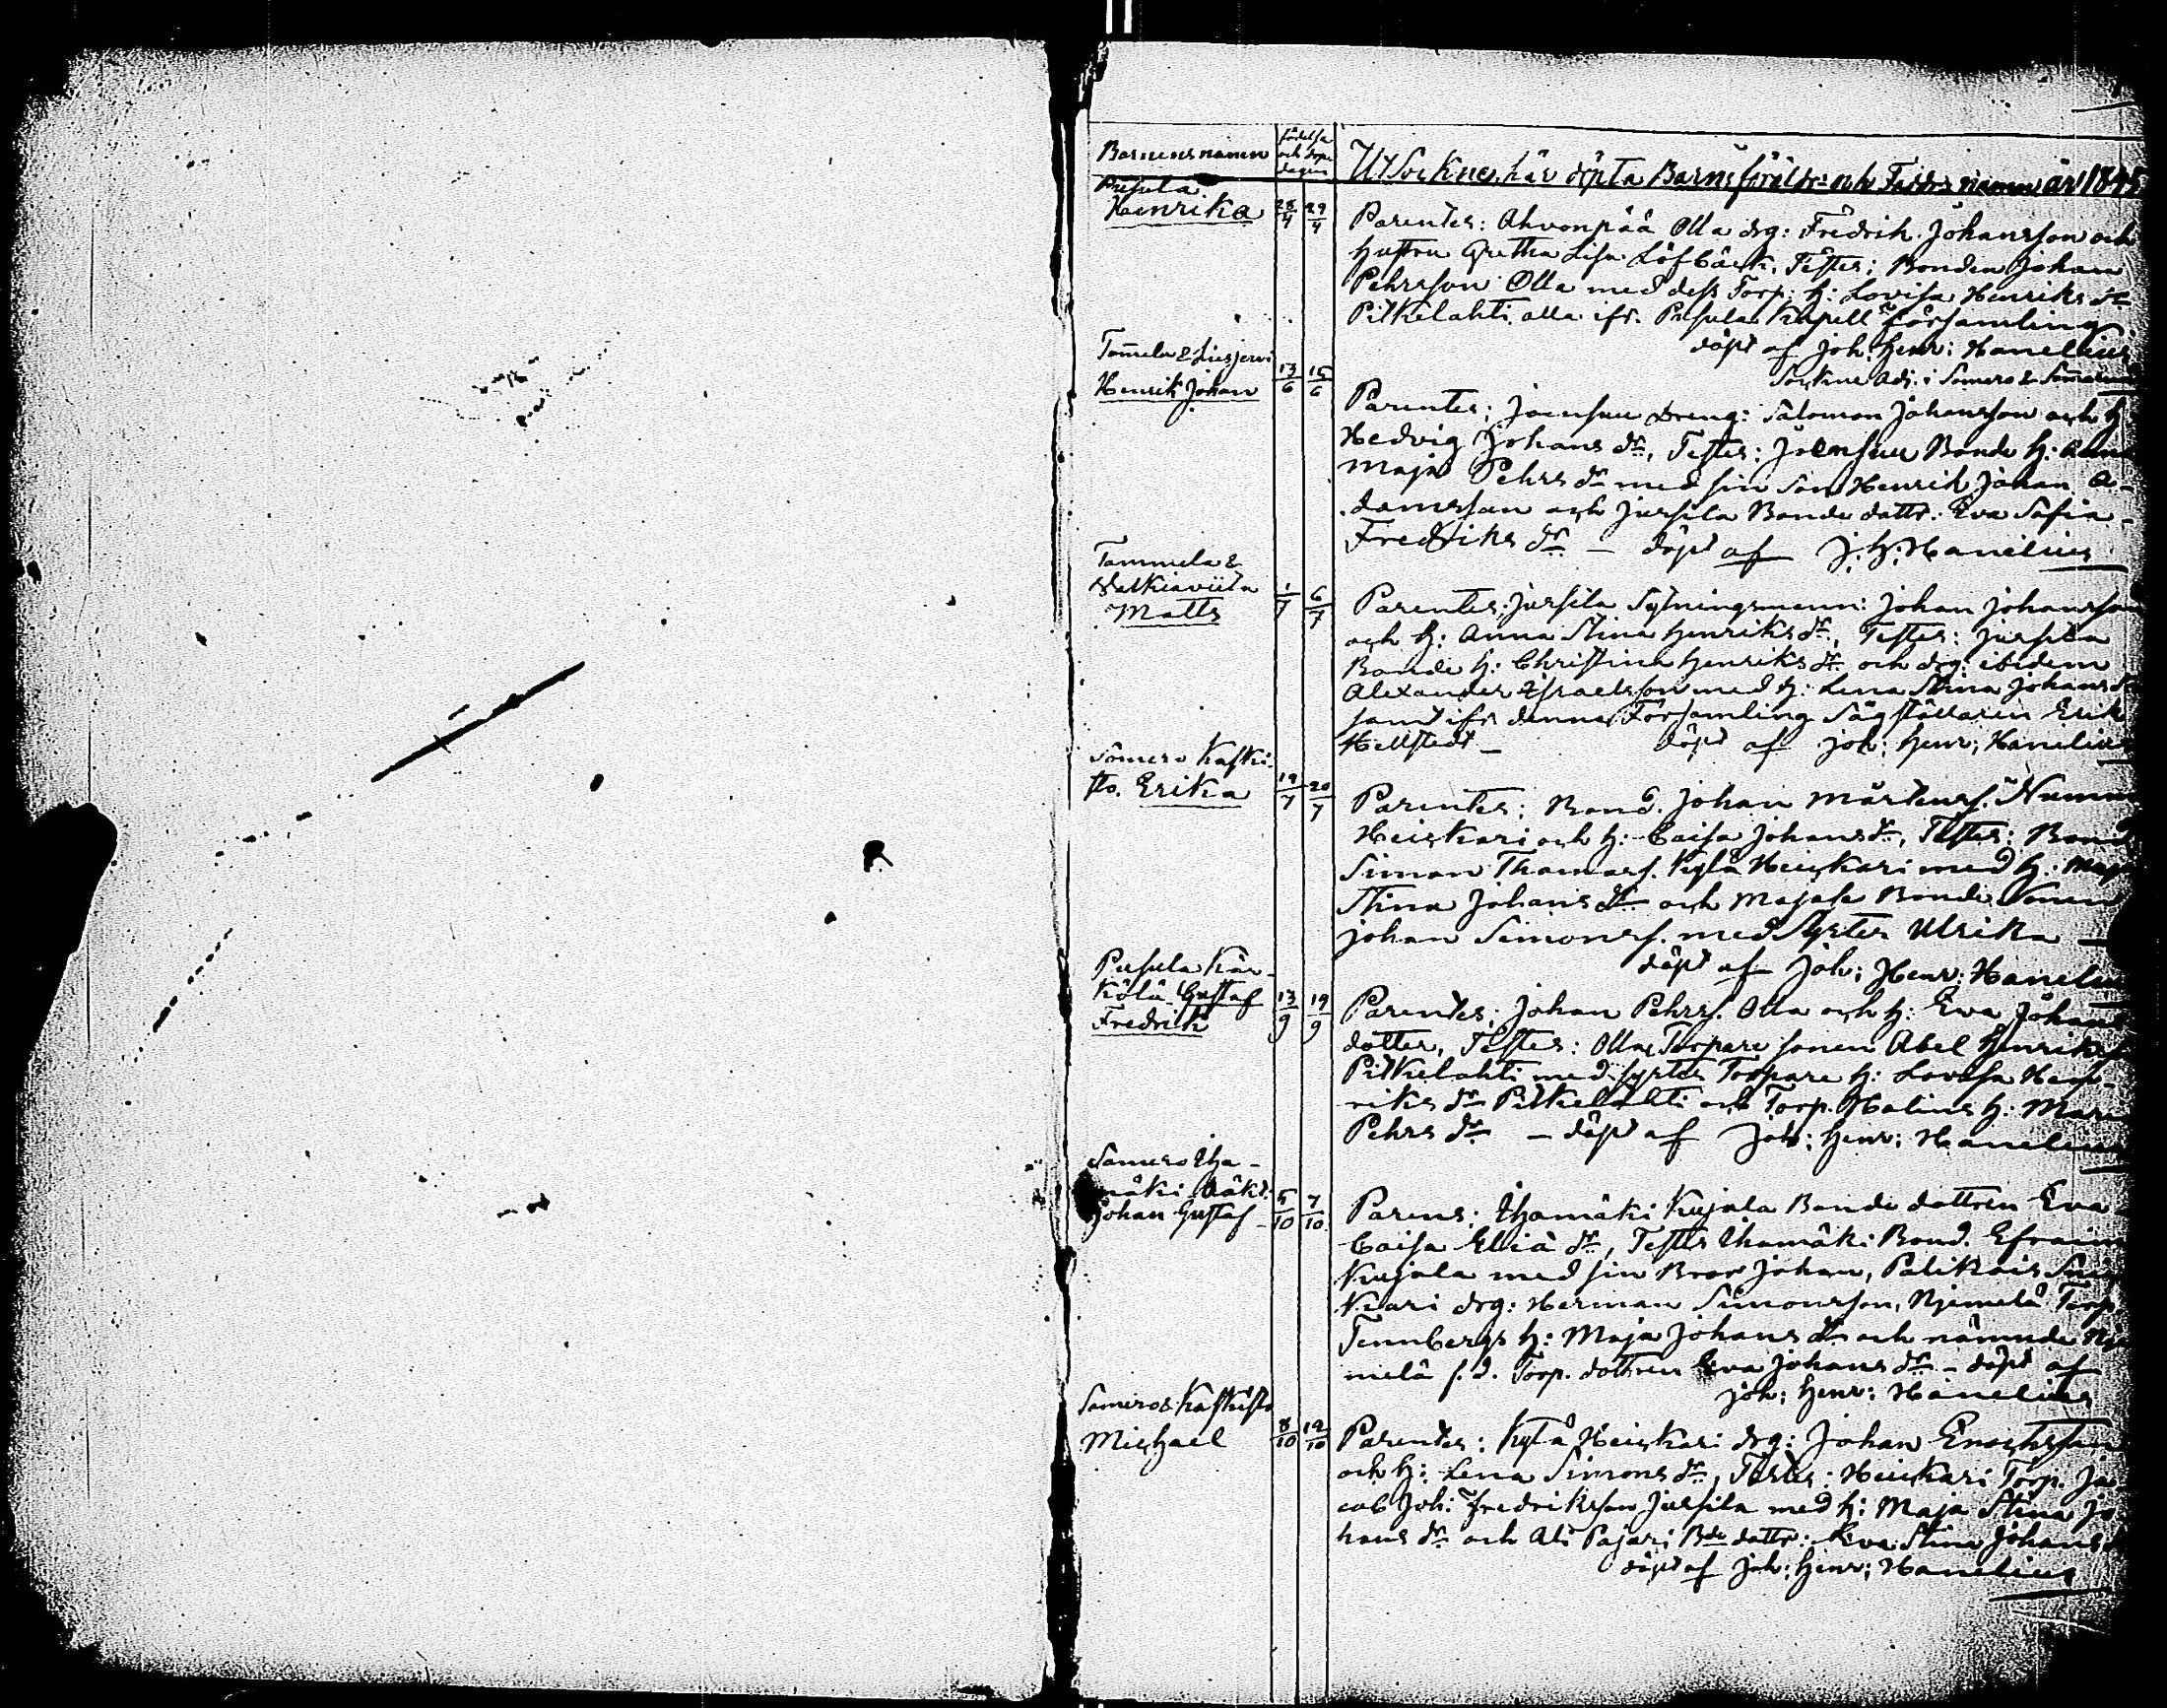 Barnens namn
födelse
och döpe
dagen
Utsockne, här döpta Barns föräldr: och Fadd: namn år 1845
Pusula
Henrika
28/4 29/4
Parentes: Ahvonpää Olla drg: Fredrik Johansson och
hustru Gretha Lisa Löfbäck, Testes: Bonden Johan
Pehrsson Olla med dess Torp: h: Lovisa Henriks dr
Pitkelahti alla ifr. Pusula Kapell församling
döpt af Joh: Henr: Hanelius
Sockne Adj. i Somero &
Tam̄ela & Liesjervi
Henrik Johan
13/6 15/6
Parentes: Joensuu Dreng: Salomon Johansson och h
Hedvig Johans dr, Testes: Joensuu Bonde h: Anna
Maja Pehrs dr med sin Son Henrik Johan A-
damsson och Jussila Bonde dottr. Eva Sofia
Fredriks dr — döpt af J. H: Hanelius
Tammela &
Matts
1/7 6/7
Parentes: Jussila Sytningsmann: Johan Johansson
och h: Anna Stina Henriks dr, Testes: Jussila
Bonde h: Christina Henriks dr och drg: ibidem
Alexander Israelsson med h: Lena Stina Johans dr
samt ifr denna Församling Sågställaren Erik
Hellstedt — döpt af Joh: Henr: Hanelius
Somero Kaski-
sto. Erika
19/7 20/7
Parentes: Bond. Johan Mårtenss.
Heickari och h: Caisa Johans dr, Testes: Bond
Simon Thomass. Kylä Heickari med h: Maja
Stina Johans dr och Bonde Sonen
Johan Simonss. med Syster Ulrika —
döpt af Joh: Henr: Hanelius
Pusula Kär-
kölä Gustaf
Fredrik
13/9 19/9
Parentes: Johan Pehrss. Olla och h: Eva Johans
dotter, Testes: Olla Torpare sonen Abel Henrikss
Pitkelahti med syster Torpare h: Lovisa Hen-
riks dr Pitkelahti och Torp. Halins h: Maria
Pehrs dr — döpt af Joh: Henr: Hanelius
Somero Iha-
mäki oäkt.
Johan Gustaf
5/10 7/10
Parens: Ihamäki Kujala Bonde dottren Eva
Caisa Eliä dr, Testes Ihamäki Bond. Efraim
Kujala med sin Bror Johan, Palikais
kari drg: Herman Simonsson, Njemelä Torp.
Tennbergs h: Maja Johans dr och nämnde Nje
melä f. d. Torp. dottren Eva Johans dr — döpt af
Joh: Henr: Hanelius
Somero & Kaskisto
Michael
8/10 12/10
Parentes: Kylä Heickari drg: Johan Enochsson
och h: Lena Simons dr, Testes: Heickari Torp. Ja-
cob Joh: Fredriksson Jussila med h: Maja Stina Jo-
hans dr och Ali Pajari Bde dottr: Eva Stina Johans
döpt af Joh: Henr: Hanelius